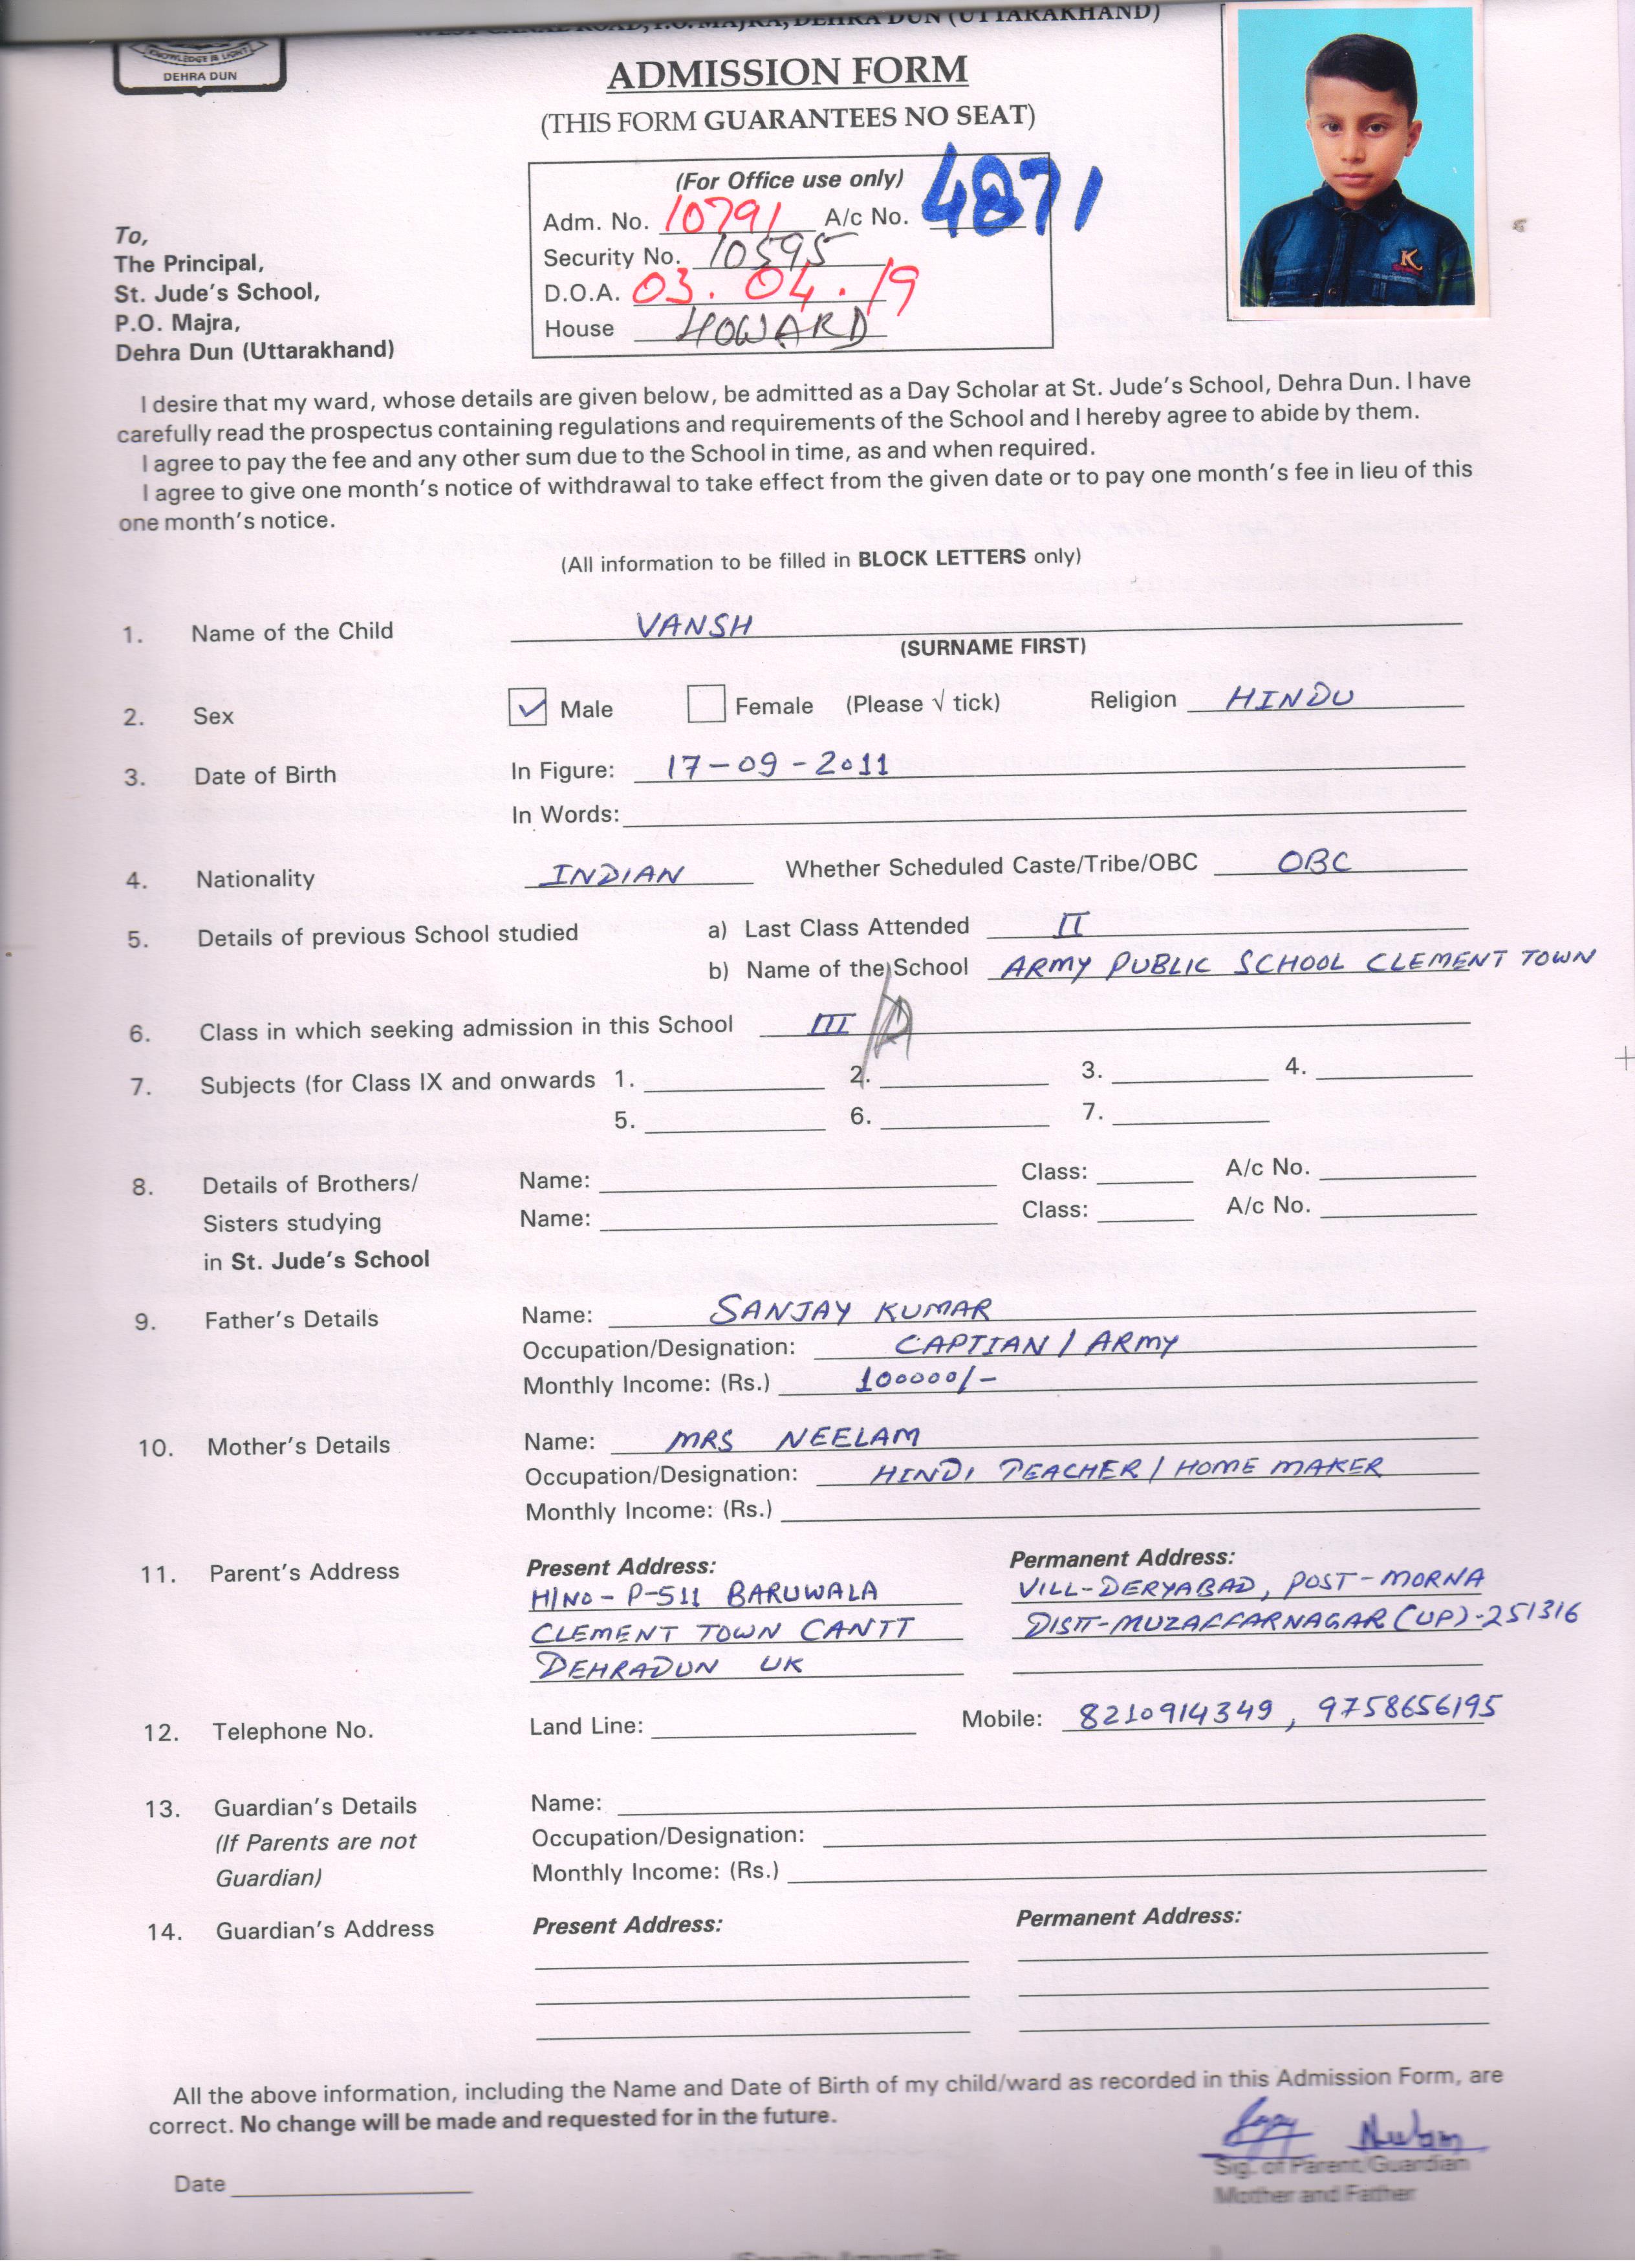 WEST CANAL ROAD, P.O. MAJRA, DEHRA DUN (UTTARAKHAND)
KNOWLEDGE IS LIGHT
DEHRA DUN
ADMISSION FORM
(THIS FORM GUARANTEES NO SEAT)
(For Office use only)
Adm. No. 10791 A/c No. 4871
Security No. 10595
D.O.A. 03.04.19
House HOWARD
To,
The Principal,
St. Jude's School,
P.O. Majra,
Dehra Dun (Uttarakhand)
K
I desire that my ward, whose details are given below, be admitted as a Day Scholar at St. Jude's School, Dehra Dun. I have
carefully read the prospectus containing regulations and requirements of the School and I hereby agree to abide by them.
I agree to pay the fee and any other sum due to the School in time, as and when required.
I agree to give one month's notice of withdrawal to take effect from the given date or to pay one month's fee in lieu of this
one month's notice.
(All information to be filled in BLOCK LETTERS only)
1. Name of the Child VANSH
(SURNAME FIRST)
2. Sex ✓ Male Female (Please √ tick) Religion HINDU
3. Date of Birth In Figure: 17-09-2011
In Words:
4. Nationality INDIAN Whether Scheduled Caste/Tribe/OBC OBC
5. Details of previous School studied a) Last Class Attended II
b) Name of the School ARMY PUBLIC SCHOOL CLEMENT TOWN
6. Class in which seeking admission in this School III
7. Subjects (for Class IX and onwards 1. 2. 3. 4.
5. 6. 7.
8. Details of Brothers/ Name: Class: A/c No.
Sisters studying Name: Class: A/c No.
in St. Jude's School
9. Father's Details Name: SANJAY KUMAR
Occupation/Designation: CAPTIAN / ARMY
Monthly Income: (Rs.) 100000/-
10. Mother's Details Name: MRS NEELAM
Occupation/Designation: HINDI TEACHER / HOME MAKER
Monthly Income: (Rs.)
11. Parent's Address Present Address: Permanent Address:
H/NO - P-511 BARUWALA VILL-DERYABAD, POST-MORNA
CLEMENT TOWN CANTT DISTT-MUZAFFARNAGAR (UP)-251316
DEHRADUN UK
12. Telephone No. Land Line: Mobile: 8210914349, 9758656195
13. Guardian's Details Name:
(If Parents are not Occupation/Designation:
Guardian) Monthly Income: (Rs.)
14. Guardian's Address Present Address: Permanent Address:
All the above information, including the Name and Date of Birth of my child/ward as recorded in this Admission Form, are
correct. No change will be made and requested for in the future.
Neelam
Sig. of Parent/Guardian
Date
Mother and Father